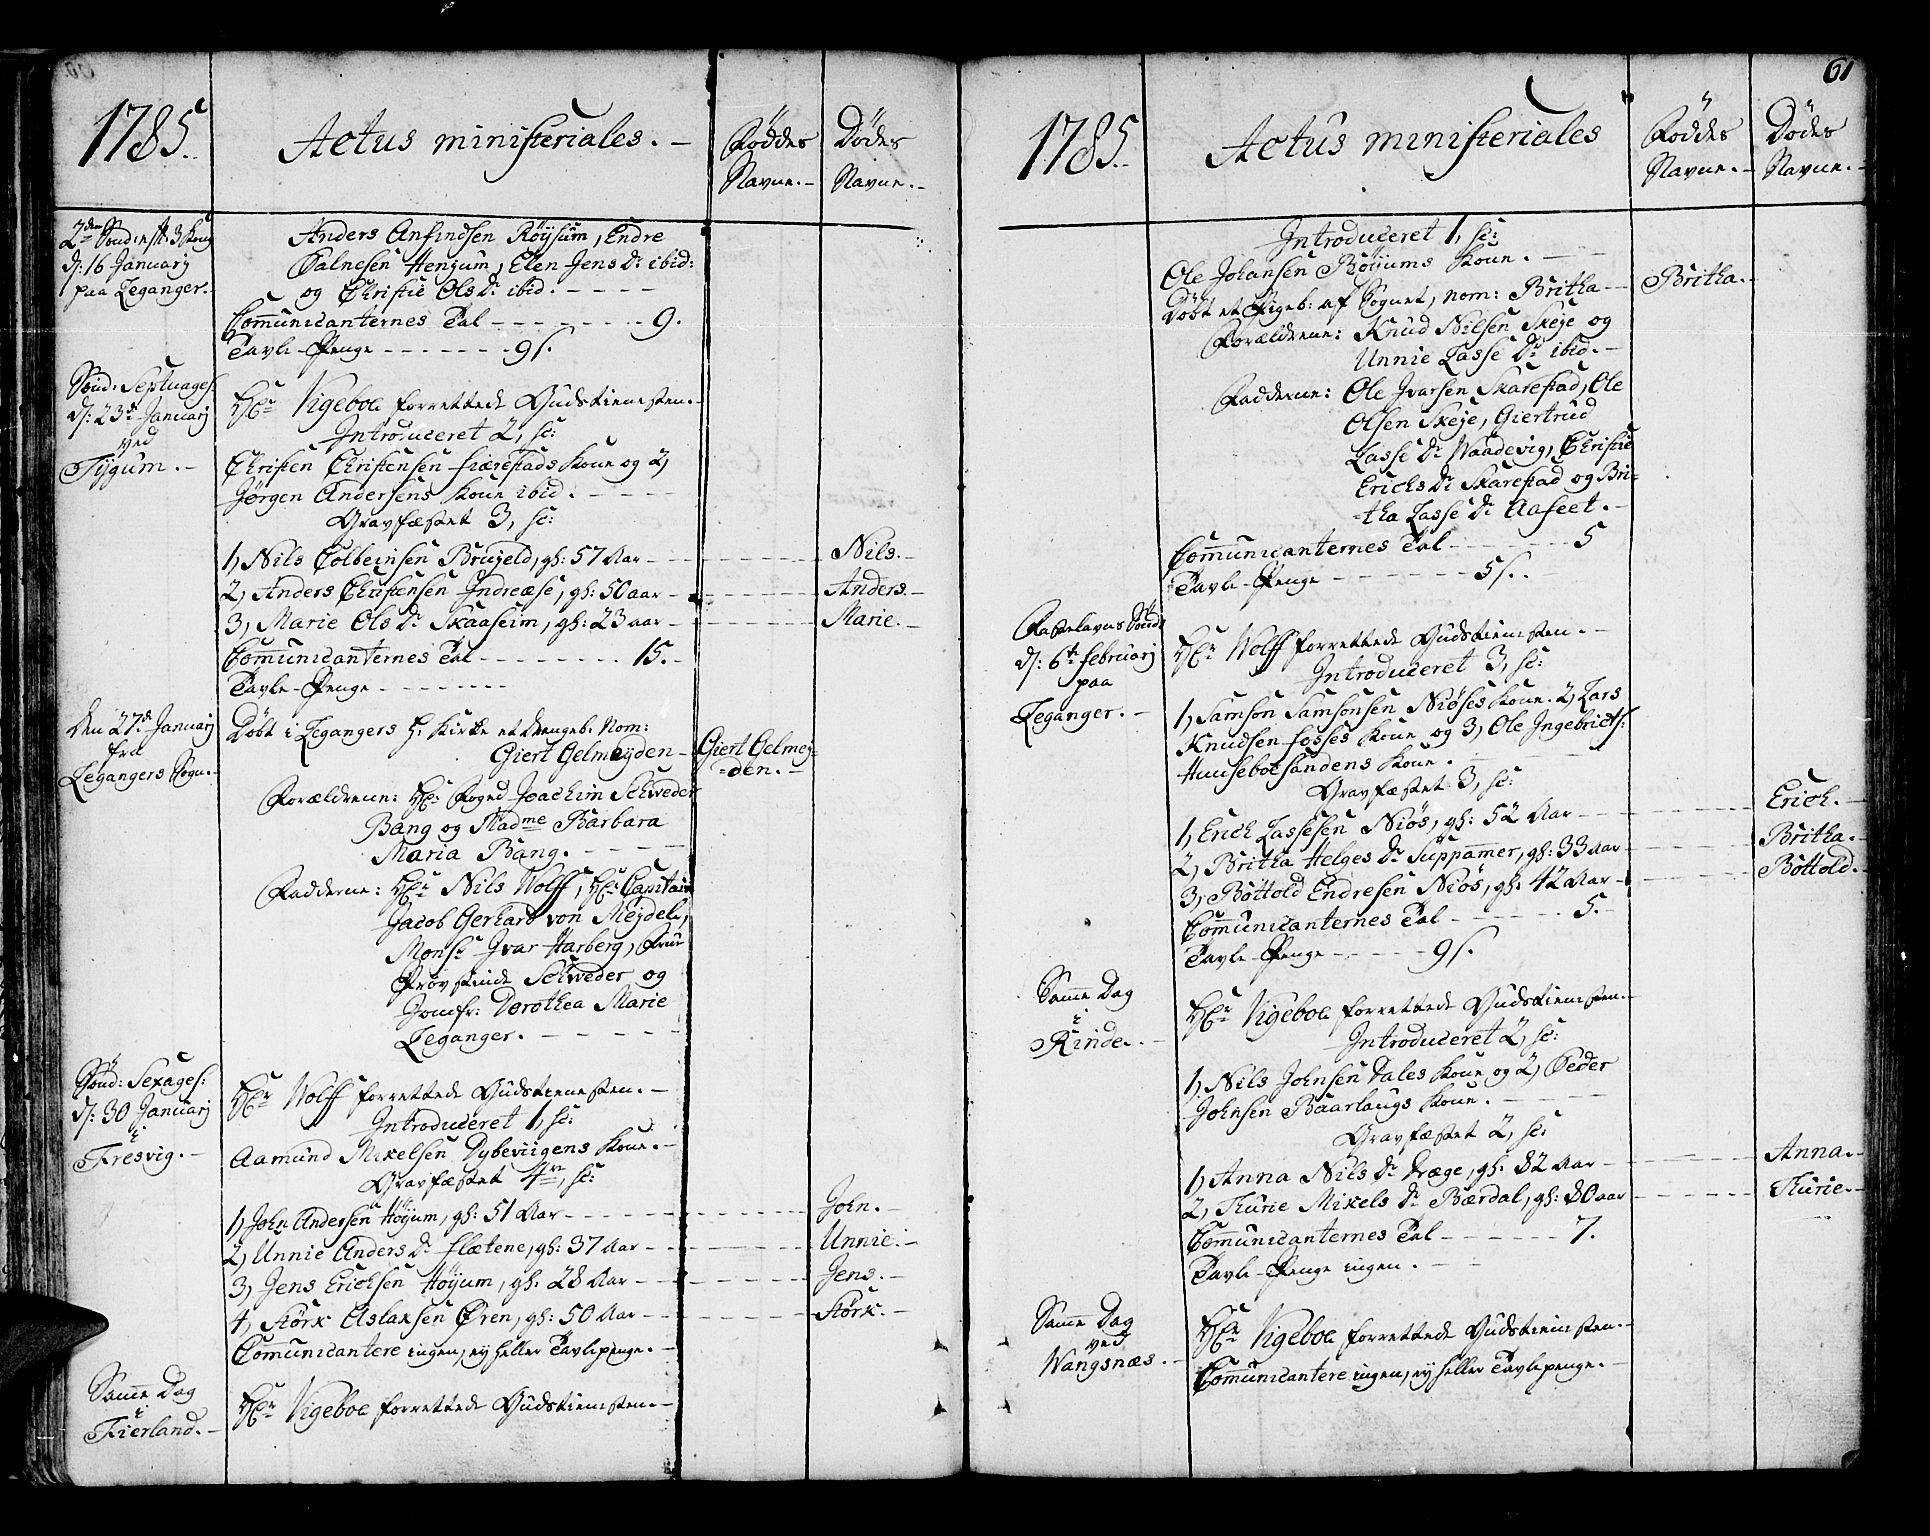 1785.
Actus ministeriales.
Föddes Navne.
Dödes Navne.
2den Sönd: efter 3 Kong
d: 16 Januarj
paa Leganger.
Anders Ansindsen Röysum, Endre
Salnesen Henjum, Elen Jens Dr ibid:
og Christie Ols Dr ibid.
Comunicanternes Tal - 9.
Tavle-Penge - 9 s.
Sönd: Septuages:
d: 23de Januarj
ved
Tygum.
Hr Vigeboe forrettede Gudstienesten.
Introduceret 2, sc:
Christen Christensen Fiærestads Kone og 2,
Jörgen Andersens Kone ibid.
Gravfæstet 3, sc:
1, Nils Colbeinsen Brujeld, gl: 57 Aar - Nils.
2, Anders Christensen Indreæse, gl: 50 aar - Anders.
3, Marie Ols Dr Skaaseim, gl: 23 aar - Marie.
Comunicanternes Tal - 15.
Tavle-Penge
Den 27de Januarj
fra
Legangers Sogn.
Döbt i Legangers H. Kirke et drengeb: Nom:
Giert Gelmeyden - Giert Gelmey=
=den.
Forældrene: Hr Foged Joachim Schweder
Bang og Madme Barbara
Maria Bang.
Fadderne: Hr Nils Wolff, Hr Capitain
Jacob Gerhard von Meydel,
Monsr Ivar Harberg, Frue
Pröfstinde Schweder og
Jomfr: Dorothea Marie
Leganger.
Sönd: Sexages:
d: 30 Januarj
i
Fresvig.
Hr Wolff forrettede Gudstienesten.
Introduceret 1, sc:
Aamund Mikelsen Dybeviigens Kone.
Gravfæstet 4re, sc:
1, John Andersen Höyum, gl: 51 Aar - John.
2, Unnie Anders Dr Flætene, gl: 37 Aar - Unnie.
3, Jens Erichsen Höyum, gl: 28 Aar - Jens.
4, Störk Aslaksen Ören, gl: 50 Aar - Störk.
Comunicantere ingen, ey heller Tavlepenge.
Same Dag
i
Fierland.
Hr Vigeboe forrettede Gudstienesten.
61
1785.
Actus ministeriales
Föddes Navne.
Dödes Navne.
Introduceret 1, sc:
Ole Johansen Röyums Kone.
Döbt et Pigeb: af Sognet, nom: Britha - Britha.
Forældrene: Knud Nilsen Skeje og
Unnie Lasse Dr ibid.
Fadderne: Ole Ivarsen Skarestad, Ole
Olsen Skeje, Giertrud
Lasse Dr Waadevig, Christie
Erichs Dr Skarestad og Bri=
=tha Lasse Dr Aafeet.
Comunicanternes Tal - 5
Tavle-Penge - 5 s.
Fastelavns Sönd:
d: 6te Februarj
paa
Leganger.
Hr Wolff forrettede Gudstienesten.
Introduceret 3, sc:
1, Samson Samsonsen Niöses Kone. 2, Lars
Knudsen Fosses Kone og 3, Ole Ingebricts:
Huuseboesandens Kone.
Gravfæstet 3, sc:
1, Erich Lassesen Niös, gl: 52 Aar - Erich.
2, Britha Helges Dr Suppamer, gl: 33 Aar - Britha.
3, Böttold Endresen Niös, gl: 42 Aar - Böttold.
Comunicanternes Tal - 5.
Tavle-Penge - 9 s.
Same Dag
i
Rinde.
Hr Vigeboe forrettede Gudstienesten.
Introduceret 2, sc:
1, Nils Johnsen Dales Kone og 2, Peder
Johnsen Baarlaugs Kone.
Gravfæstet 2, sc:
1, Anna Nils Dr Dræge, gl: 82 Aar - Anna.
2, Thurie Mikels Dr Bærdal, gl: 80 aar - Thurie.
Comunicanternes Tal - 7.
Tavle-Penge ingen.
Same Dag
ved
Wangsnæs.
Hr Vigeboe forrettede Gudstienesten.
Comunicantere ingen, ey heller Tavlepenge.